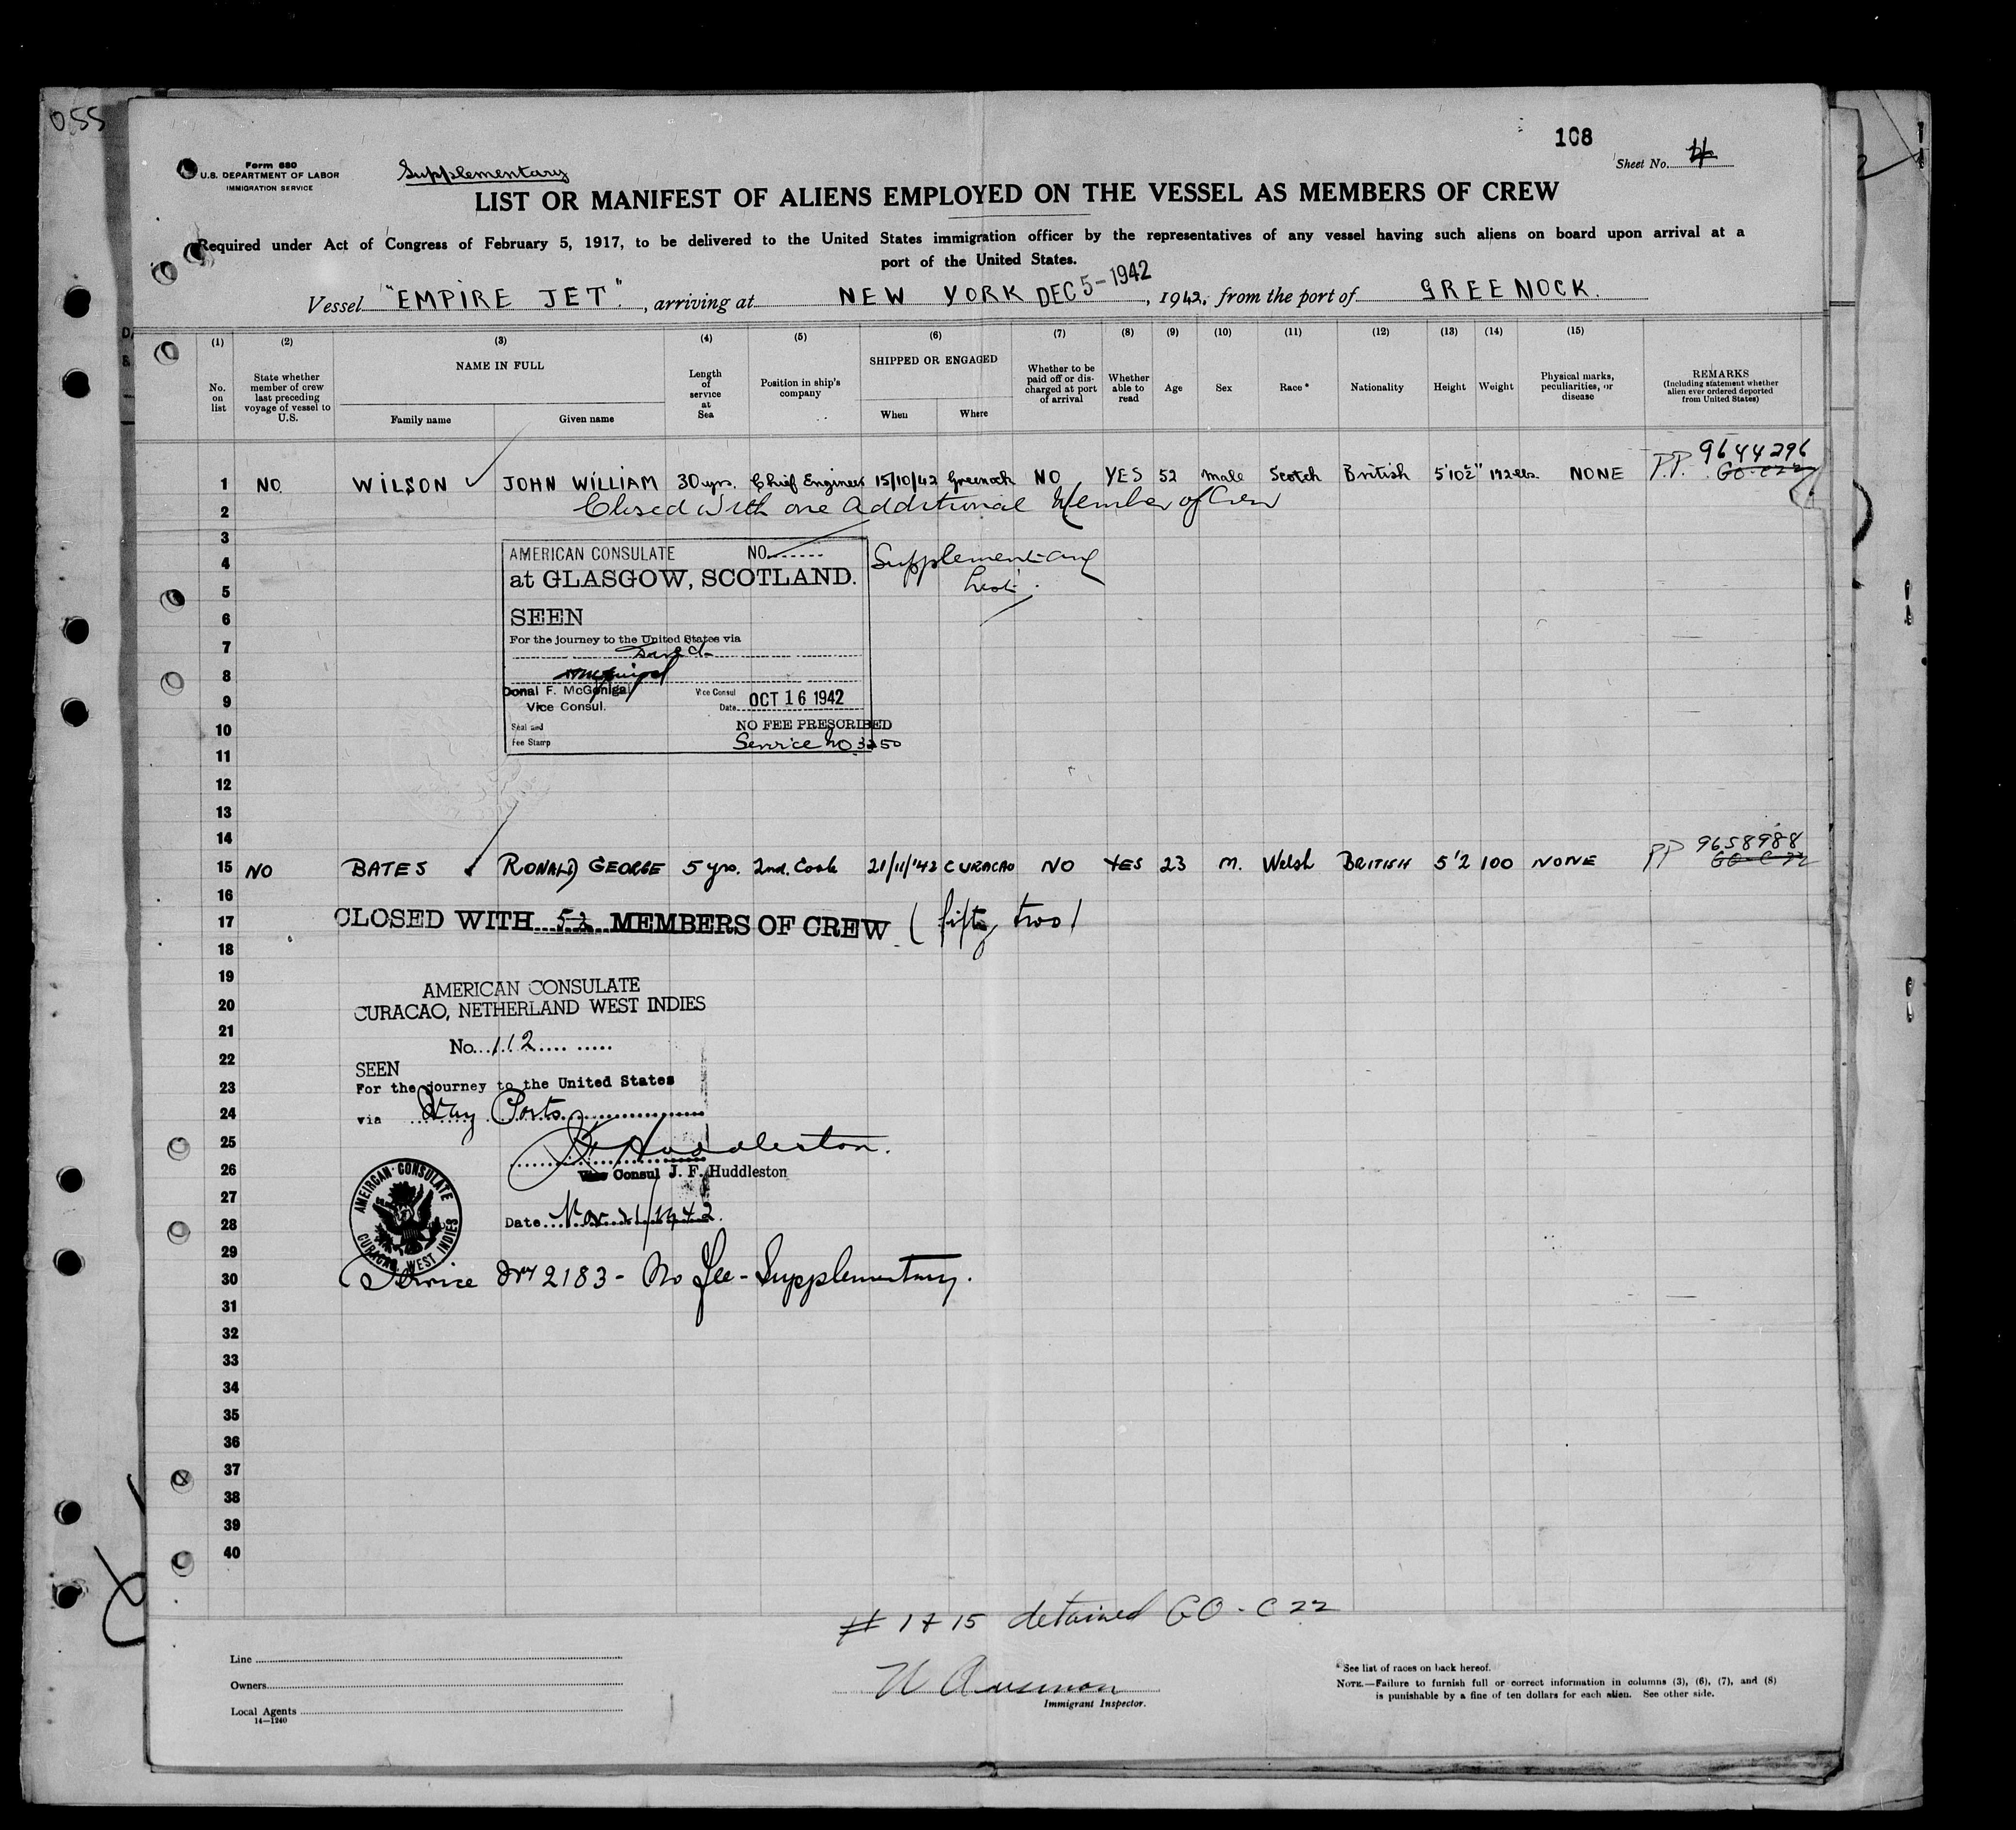 055
108
Form 680
U.S. DEPARTMENT OF LABOR
IMMIGRATION SERVICE
Supplementary
Sheet No. 4
LIST OR MANIFEST OF ALIENS EMPLOYED ON THE VESSEL AS MEMBERS OF CREW
Required under Act of Congress of February 5, 1917, to be delivered to the United States immigration officer by the representatives of any vessel having such aliens on board upon arrival at a
port of the United States.
Vessel "EMPIRE JET", arriving at NEW YORK DEC 5-1942, 1942, from the port of GREENOCK.
(1) (2) (3) (4) (5) (6) (7) (8) (9) (10) (11) (12) (13) (14) (15)
No. on list
State whether member of crew last preceding voyage of vessel to U.S.
NAME IN FULL
Family name
Given name
Length of service at Sea
Position in ship's company
SHIPPED OR ENGAGED
When
Where
Whether to be paid off or discharged at port of arrival
Whether able to read
Age
Sex
Race*
Nationality
Height
Weight
Physical marks, peculiarities, or disease
REMARKS
(Including statement whether alien ever ordered deported from United States)
1 NO. WILSON JOHN WILLIAM 30 yrs. Chief Engineer 15/10/42 Greenock NO YES 52 male Scotch British 5'10½" 192 lbs. NONE P.P. 9644296 GO-C22
2 Closed With one Additional Member of Crew
3
AMERICAN CONSULATE NO.
4
at GLASGOW, SCOTLAND.
Supplementary
List
5
6
SEEN
7
For the journey to the United States via
8
Donal F. McGonigal
Vice Consul
9
Vice Consul.
Date OCT 16 1942
10
Seal and
Fee Stamp
NO FEE PRESCRIBED
Service No. 3250
11
12
13
14
15 NO BATES RONALD GEORGE 5 yrs. 2nd. Cook 21/11/'42 CURACAO NO YES 23 M. Welsh BRITISH 5'2 100 NONE PP 9658988 GO-C-22
16
17 CLOSED WITH 52 MEMBERS OF CREW (fifty two)
18
19
AMERICAN CONSULATE
20
CURACAO, NETHERLAND WEST INDIES
21
No. 112
22
SEEN
23
For the journey to the United States
24
via Way Ports
25
J F Huddleston.
26
Vice Consul J. F. Huddleston
27
28
Date Nov 21/1942.
AMERICAN CONSULATE
CURACAO, WEST INDIES
29
30
Service No 2183 - No Fee - Supplementary.
31
32
33
34
35
36
37
38
39
40
# 1 & 15 detained GO-C22
Line
Owners
Local Agents
14—1240
Immigrant Inspector.
* See list of races on back hereof.
NOTE.—Failure to furnish full or correct information in columns (3), (6), (7), and (8)
is punishable by a fine of ten dollars for each alien. See other side.